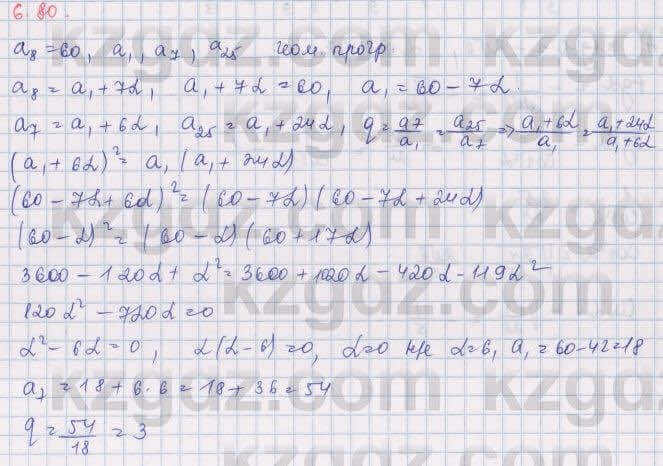 6.80.
a₈=60, a₁, a₇, a₂₅ геом. прогр.
a₈ = a₁+7d, a₁+7d=60, a₁=60-7d.
a₇ = a₁+6d, a₂₅ = a₁+24d, q=a₇/a₁=a₂₅/a₇ => (a₁+6d)/a₁=(a₁+24d)/(a₁+6d)
(a₁+6d)²= a₁(a₁+24d)
(60-7d+6d)²=(60-7d)(60-7d+24d)
(60-d)²=(60-d)(60+17d)
3600-120d+d²=3600+1020d-420d-119d²
120d²-720d=0
d²-6d=0, d(d-6)=0, d=0 н/е d=6, a₁=60-42=18
a₇=18+6·6=18+36=54
q=54/18=3
kzgdz.com
kzgdz.com
kzgdz.com
kzgdz.com
kzgdz.com